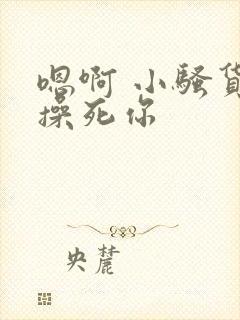 嗯啊 小骚货
操死你
央麓